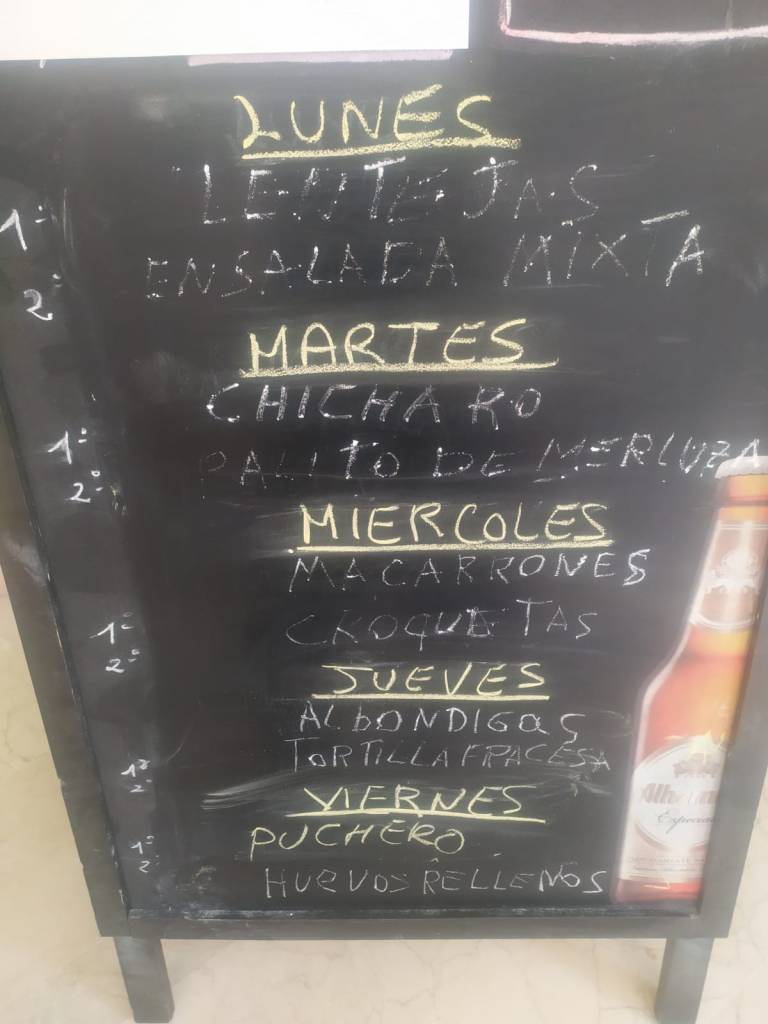 LUNES
1º LENTEJAS
2º ENSALADA MIXTA
MARTES
1º CHICHARO
2º PALITO DE MERLUZA
MIERCOLES
1º MACARRONES
2º CROQUETAS
JUEVES
1º ALBONDIGAS
2º TORTILLA FRACESA
VIERNES
1º PUCHERO
2º HUEVOS RELLENOS
Especial